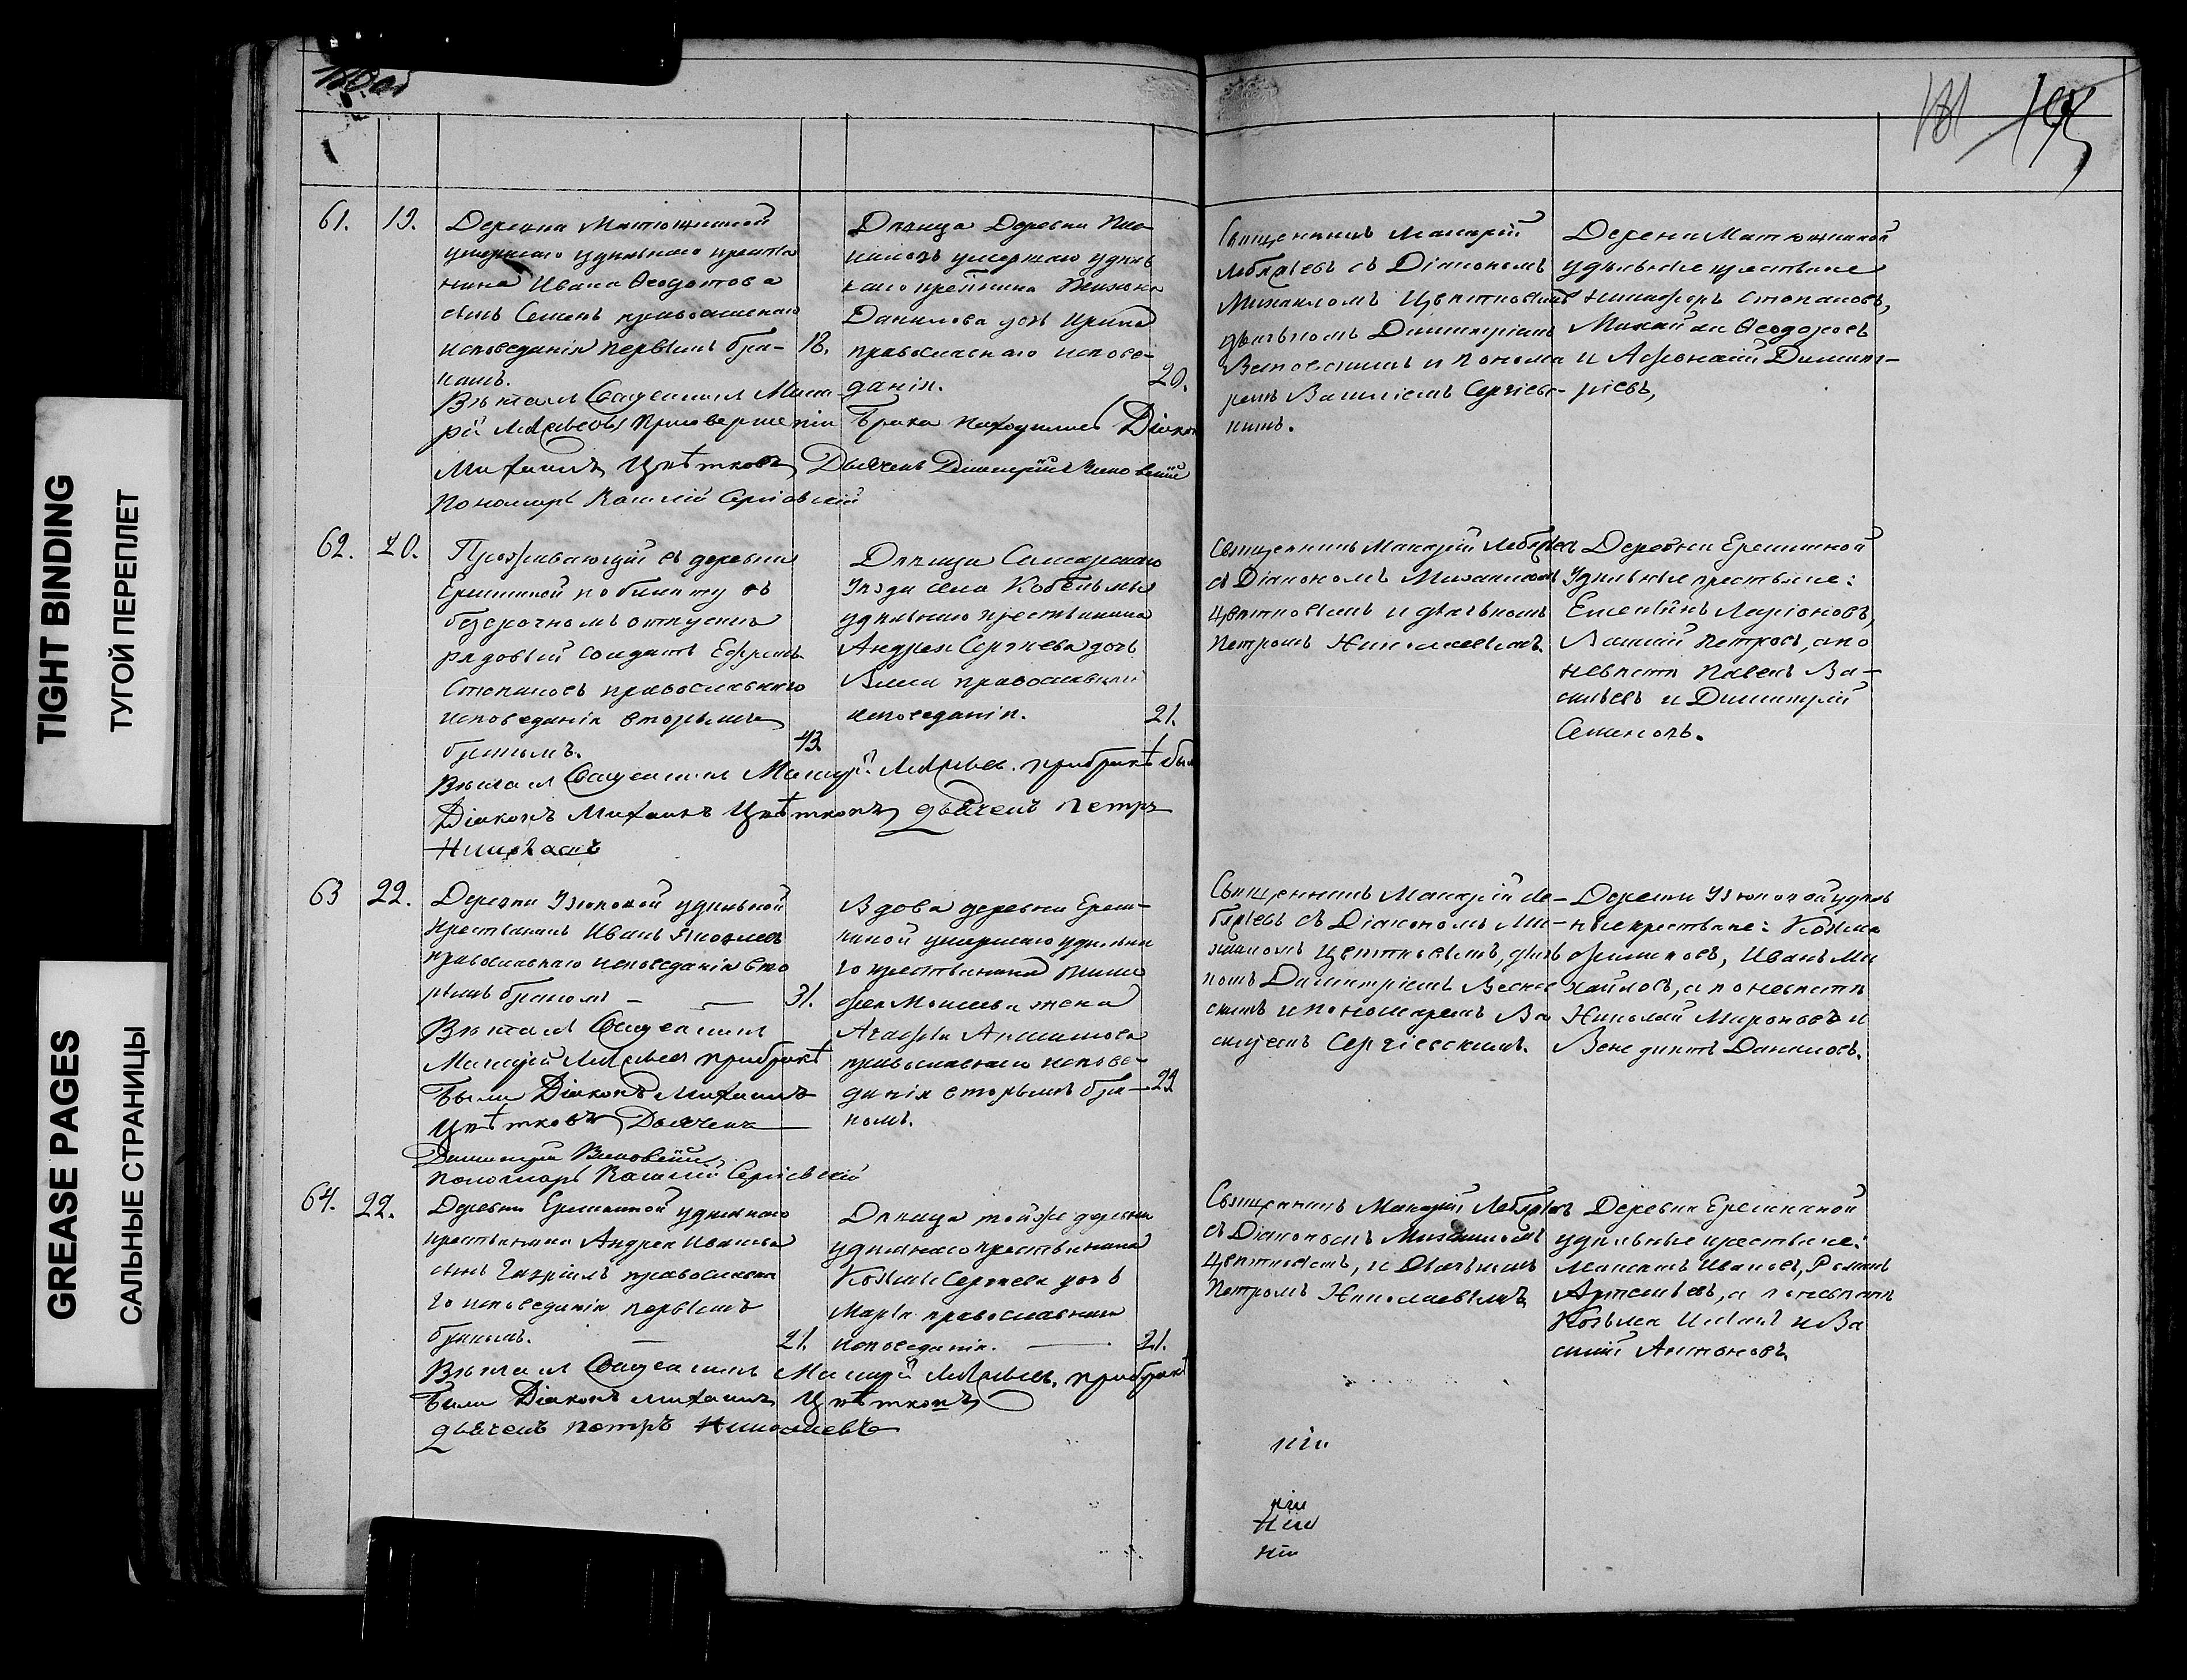 TIGHT BINDING
ТУГОЙ ПЕРЕПЛЕТ
GREASE PAGES
САЛЬНЫЕ СТРАНИЦЫ
181
61. 19.
Деревни Матюшкиной
умершаго удѣльнаго крестья
нина Ивана Ѳеодотова
сынъ Семенъ православнаго
исповеданія первымъ бра-
комъ.
18.
Девица Деревни
умершаго удѣль
наго
Данилова дочь Ирина
православнаго испове-
данія.
20.
Вѣнчалъ Священникъ Мака
рій Лебяжьевъ при совершеніи Брака находились Діаконъ
Михаилъ Цвѣтковъ, Дьячекъ Димитрій
Пономарь Василій Сергіевскій
Священникъ Макарій
Лебяжьевъ съ Діакономъ
Михаиломъ Цветковымъ
дьячкомъ Димитріемъ
и понома
ремъ Василіемъ Сергіевс-
кимъ.
Деревни Матюшкиной
удѣльные крестьяне
Никифоръ Степановъ,
Михаилъ Ѳеодоровъ
и Афонасій Димит-
ріевъ,
62. 20.
Проживающій въ деревни
Ерешкиной по билету въ
безсрочномъ отпуске
рядовый солдатъ Ефремъ
Степановъ православнаго
исповеданія вторымъ
бракомъ.
43.
Девица Самарскаго
Уезда села
удельнаго крестьянина
Андрея Сергеева дочь
православнаго
исповеданія.
21.
Вѣнчалъ Священникъ Макарій Лебяжьевъ. при бракѣ был
Діаконъ Михаилъ Цвѣтковъ, дьячекъ Петръ
Николаевъ
Священникъ Макарій Лебяжьевъ
съ Діакономъ Михаиломъ
Цветковымъ и дьячкомъ
Петромъ Николаевымъ.
Деревни Ерешкиной
Удельные крестьяне:
Емельянъ Ларіоновъ,
Василій Петровъ, а по
невѣсте Павелъ Ва-
сильевъ и Димитрій
Семеновъ.
63 22.
Деревни Узюковой удельной
крестьянинъ Иванъ Яковлевъ
православнаго исповеданія вто
рымъ бракомъ
31.
Вдова деревни Ереш-
киной умершаго удельна
го крестьянина Тимо
фея Моисеева жена
Агафья
православнаго испове-
данія вторымъ бра-
комъ.
Вѣнчалъ Священникъ
Макарій Лебяжьевъ при бракѣ
Были Діаконъ Михаилъ
Цвѣтковъ, Дьячекъ
Димитрій
Пономарь Василій Сергіевскій
Священникъ Макарій Ле-
бяжьевъ съ Діакономъ Ми-
хаиломъ Цветковымъ, дьяч
комъ Димитріемъ
скимъ и пономаремъ Ва
силіемъ Сергіевскимъ.
Деревни Узюковой удѣль
ные крестьяне: Козьма
Иванъ Ми
хайловъ, а по невѣстѣ
Николай Мироновъ и
Венедиктъ Даниловъ.
64. 22.
Деревни Ерешкиной удельнаго
крестьянина Андрея Иванова
сынъ Гавріилъ православна
го исповеданія первымъ
бракомъ.
21.
Девица той же деревни
удельнаго крестьянина
Козьмы Сергеева дочь
Марья православнаго
исповеданія.
21.
Вѣнчалъ Священникъ Макарій Лебяжьевъ, при бракѣ
Были Діаконъ Михаилъ Цвѣтковъ,
дьячекъ Петръ Николаевъ
Священникъ Макарій Лебяжьевъ
съ Діакономъ Михаиломъ
Цветковымъ, и Дьячкомъ
Петромъ Николаевымъ
Деревни Ерешкиной
удельные крестьяне:
Ивановъ, Романъ
Артемьевъ, а по невѣстѣ
Козьма и Ва
силій Антоновъ.